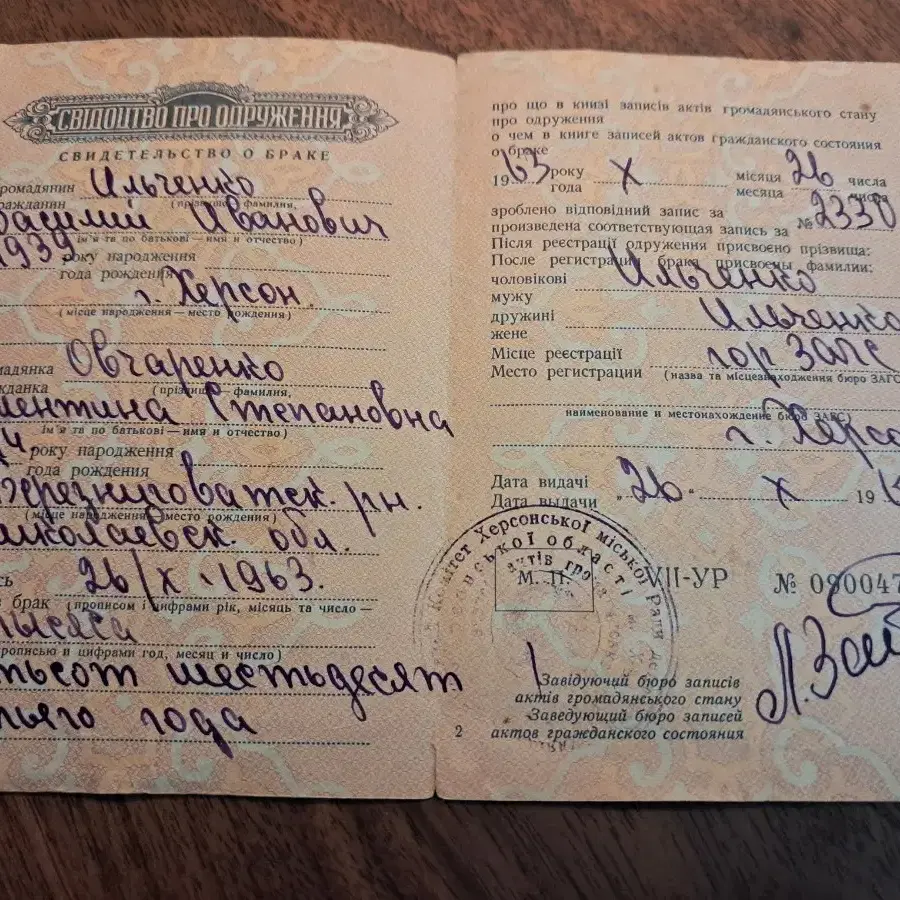 СВІДОЦТВО ПРО ОДРУЖЕННЯ
СВИДЕТЕЛЬСТВО О БРАКЕ
ромадянин Ильченко
ражданин (прізвище, фамилия,
Василий Иванович
ім'я та по батькові — имя и отчество)
1939 року народження
года рождения
г. Херсон
(місце народження — место рождения)
мадянка Овчаренко
жданка (прізвище, фамилия,
лентина Степановна
ім'я та по батькові — имя и отчество)
року народження
года рождения
резнуговатск. рн.
(місце народження — место рождения)
иколаевск. обл.
сь 26/X - 1963.
брак (прописом і цифрами рік, місяць та число —
тысяча
прописью и цифрами год, месяц и число)
тьсот шестьдесят
тьего года
про що в книзі записів актів громадянського стану
про одруження
о чем в книге записей актов гражданского состояния
о браке
1963 року X місяця 26 числа
года месяца числа
зроблено відповідний запис за
произведена соответствующая запись за № 2330
Після реєстрації одруження присвоєно прізвища:
После регистрации брака присвоены фамилии:
чоловікові Ильченко
мужу
дружині Ильченко
жене
Місце реєстрації гор ЗАГС
Место регистрации (назва та місцезнаходження бюро ЗАГС
наименование и местонахождение бюро ЗАГС)
г. Херсо
Дата видачі
Дата выдачи „26 “ X 19
Комітет Херсонської міської Ради де
ської області
актів гро
М. П.
VII-УР № 090047
Завідуючий бюро записів
актів громадянського стану
Заведующий бюро записей
актов гражданского состояния
2